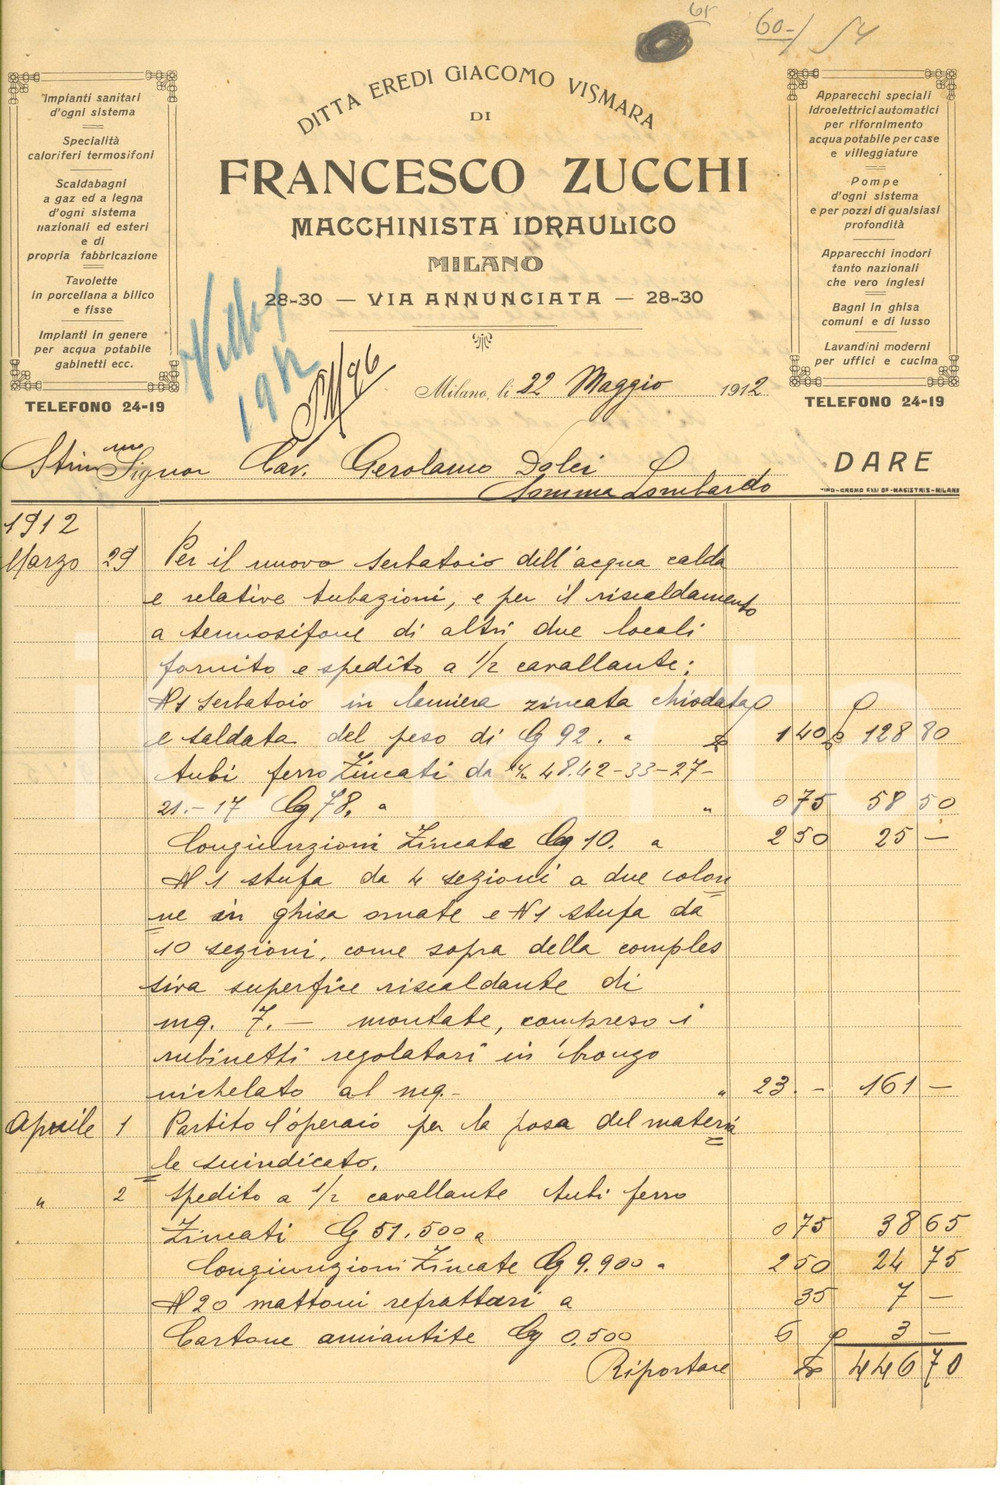 60-/
Impianti sanitari
d'ogni sistema
Specialità
caloriferi termosifoni
Scaldabagni
a gaz ed a legna
d'ogni sistema
nazionali ed esteri
e di
propria fabbricazione
Tavolette
in porcellana a bilico
e fisse
Impianti in genere
per acqua potabile
gabinetti ecc.
TELEFONO 24-19
DITTA EREDI GIACOMO VISMARA
DI
FRANCESCO ZUCCHI
MACCHINISTA IDRAULICO
MILANO
28-30 — VIA ANNUNCIATA — 28-30
Apparecchi speciali
idroelettrici automatici
per rifornimento
acqua potabile per case
e villeggiature
Pompe
d'ogni sistema
e per pozzi di qualsiasi
profondità
Apparecchi inodori
tanto nazionali
che vero inglesi
Bagni in ghisa
comuni e di lusso
Lavandini moderni
per uffici e cucina
TELEFONO 24-19
1912
Milano, li 22 Maggio 1912
Signor Cav. Gerolamo Dolci
Somma Lombardo
DARE
1912
Marzo 29 Per il nuovo serbatoio dell'acqua calda
e relative tubazioni, e per il riscaldamento
a termosifone di altri due locali
fornito e spedito a 1/2 cavallante:
N 1 serbatoio in lamiera zincata chiodata
e saldata del peso di Cg 92. a 1 40 128 80
Tubi ferro Zincati da 48.42-33-27-
21.-17 Cg 78. a " 0 75 58 50
Congiunzioni Zincate Cg 10. a 2 50 25 —
N 1 stufa da 4 sezioni a due colon
ne in ghisa ornate e N 1 stufa da
10 sezioni, come sopra della comples
siva superfice riscaldante di
mq. 7.— montate, compreso i
rubinetti regolatori in bronzo
nichelato al mq.- " 23.- 161 —
Aprile 1 Partito l'operaio per la posa del materia
le suindicato.
" 2 Spedito a 1/2 cavallante tubi ferro
Zincati Cg 51.500 a 0 75 38 65
Congiunzioni Zincate Cg 9.900 " 2 50 24 75
N 20 mattoni refrattari a 35 7 —
Cartone amiantite Cg 0.500 6 3 —
Riportare 446 70
iCharta